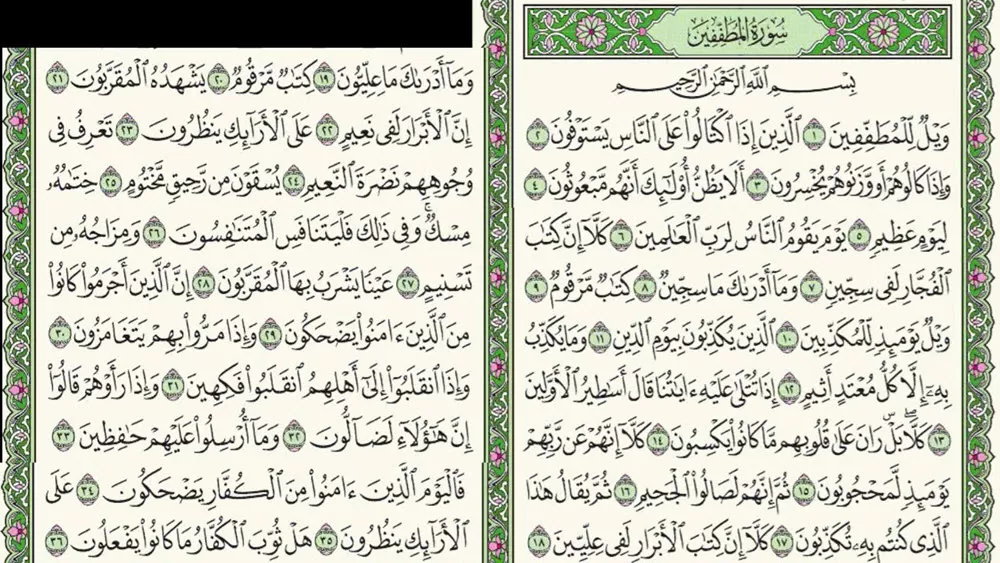 سُورَةُ المُطَفِّفِينَ
بِسْمِ اللَّهِ الرَّحْمَٰنِ الرَّحِيمِ
وَيْلٌ لِّلْمُطَفِّفِينَ ١ ٱلَّذِينَ إِذَا ٱكْتَالُوا۟ عَلَى ٱلنَّاسِ يَسْتَوْفُونَ ٢
وَإِذَا كَالُوهُمْ أَو وَّزَنُوهُمْ يُخْسِرُونَ ٣ أَلَا يَظُنُّ أُو۟لَٰٓئِكَ أَنَّهُم مَّبْعُوثُونَ ٤
لِيَوْمٍ عَظِيمٍ ٥ يَوْمَ يَقُومُ ٱلنَّاسُ لِرَبِّ ٱلْعَٰلَمِينَ ٦ كَلَّآ إِنَّ كِتَٰبَ
ٱلْفُجَّارِ لَفِى سِجِّينٍ ٧ وَمَآ أَدْرَىٰكَ مَا سِجِّينٌ ٨ كِتَٰبٌ مَّرْقُومٌ ٩
وَيْلٌ يَوْمَئِذٍ لِّلْمُكَذِّبِينَ ١٠ ٱلَّذِينَ يُكَذِّبُونَ بِيَوْمِ ٱلدِّينِ ١١ وَمَا يُكَذِّبُ
بِهِۦٓ إِلَّا كُلُّ مُعْتَدٍ أَثِيمٍ ١٢ إِذَا تُتْلَىٰ عَلَيْهِ ءَايَٰتُنَا قَالَ أَسَٰطِيرُ ٱلْأَوَّلِينَ
١٣ كَلَّا ۖ بَلْ ۜ رَانَ عَلَىٰ قُلُوبِهِم مَّا كَانُوا۟ يَكْسِبُونَ ١٤ كَلَّآ إِنَّهُمْ عَن رَّبِّهِمْ
يَوْمَئِذٍ لَّمَحْجُوبُونَ ١٥ ثُمَّ إِنَّهُمْ لَصَالُوا۟ ٱلْجَحِيمِ ١٦ ثُمَّ يُقَالُ هَٰذَا
ٱلَّذِى كُنتُم بِهِۦ تُكَذِّبُونَ ١٧ كَلَّآ إِنَّ كِتَٰبَ ٱلْأَبْرَارِ لَفِى عِلِّيِّينَ ١٨
وَمَآ أَدْرَىٰكَ مَا عِلِّيُّونَ ١٩ كِتَٰبٌ مَّرْقُومٌ ٢٠ يَشْهَدُهُ ٱلْمُقَرَّبُونَ ٢١
إِنَّ ٱلْأَبْرَارَ لَفِى نَعِيمٍ ٢٢ عَلَى ٱلْأَرَآئِكِ يَنظُرُونَ ٢٣ تَعْرِفُ فِى
وُجُوهِهِمْ نَضْرَةَ ٱلنَّعِيمِ ٢٤ يُسْقَوْنَ مِن رَّحِيقٍ مَّخْتُومٍ ٢٥ خِتَٰمُهُۥ
مِسْكٌ ۚ وَفِى ذَٰلِكَ فَلْيَتَنَافَسِ ٱلْمُتَنَٰفِسُونَ ٢٦ وَمِزَاجُهُۥ مِن
تَسْنِيمٍ ٢٧ عَيْنًا يَشْرَبُ بِهَا ٱلْمُقَرَّبُونَ ٢٨ إِنَّ ٱلَّذِينَ أَجْرَمُوا۟ كَانُوا۟
مِنَ ٱلَّذِينَ ءَامَنُوا۟ يَضْحَكُونَ ٢٩ وَإِذَا مَرُّوا۟ بِهِمْ يَتَغَامَزُونَ ٣٠
وَإِذَا ٱنقَلَبُوٓا۟ إِلَىٰٓ أَهْلِهِمُ ٱنقَلَبُوا۟ فَكِهِينَ ٣١ وَإِذَا رَأَوْهُمْ قَالُوٓا۟
إِنَّ هَٰٓؤُلَآءِ لَضَآلُّونَ ٣٢ وَمَآ أُرْسِلُوا۟ عَلَيْهِمْ حَٰفِظِينَ ٣٣
فَٱلْيَوْمَ ٱلَّذِينَ ءَامَنُوا۟ مِنَ ٱلْكُفَّارِ يَضْحَكُونَ ٣٤ عَلَى
ٱلْأَرَآئِكِ يَنظُرُونَ ٣٥ هَلْ ثُوِّبَ ٱلْكُفَّارُ مَا كَانُوا۟ يَفْعَلُونَ ٣٦